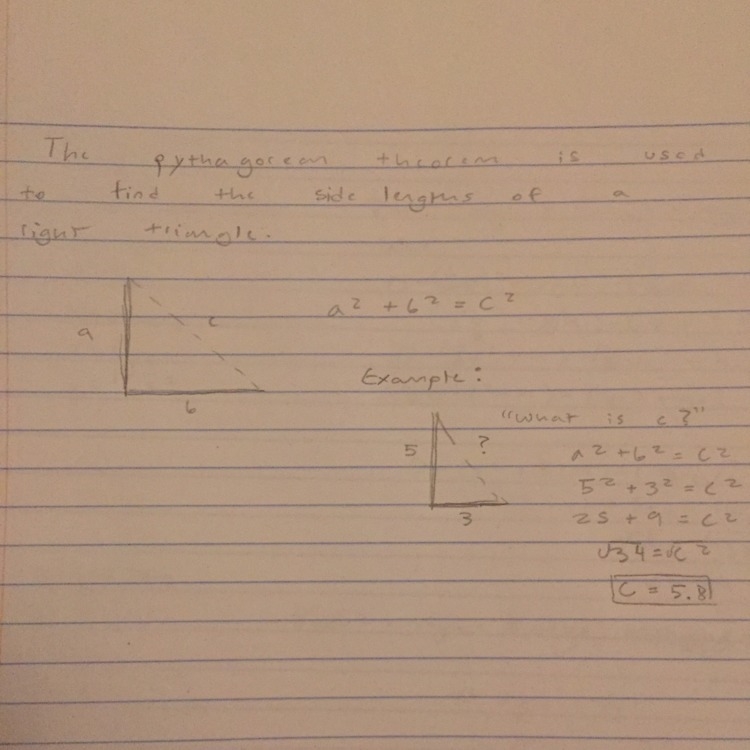 The pythagorean theorem is used
to find the side lengths of a
right triangle.
a
c
b
a² + b² = c²
Example:
5
?
3
"What is c?"
a² + b² = c²
5² + 3² = c²
25 + 9 = c²
√34 = √c²
c = 5.8